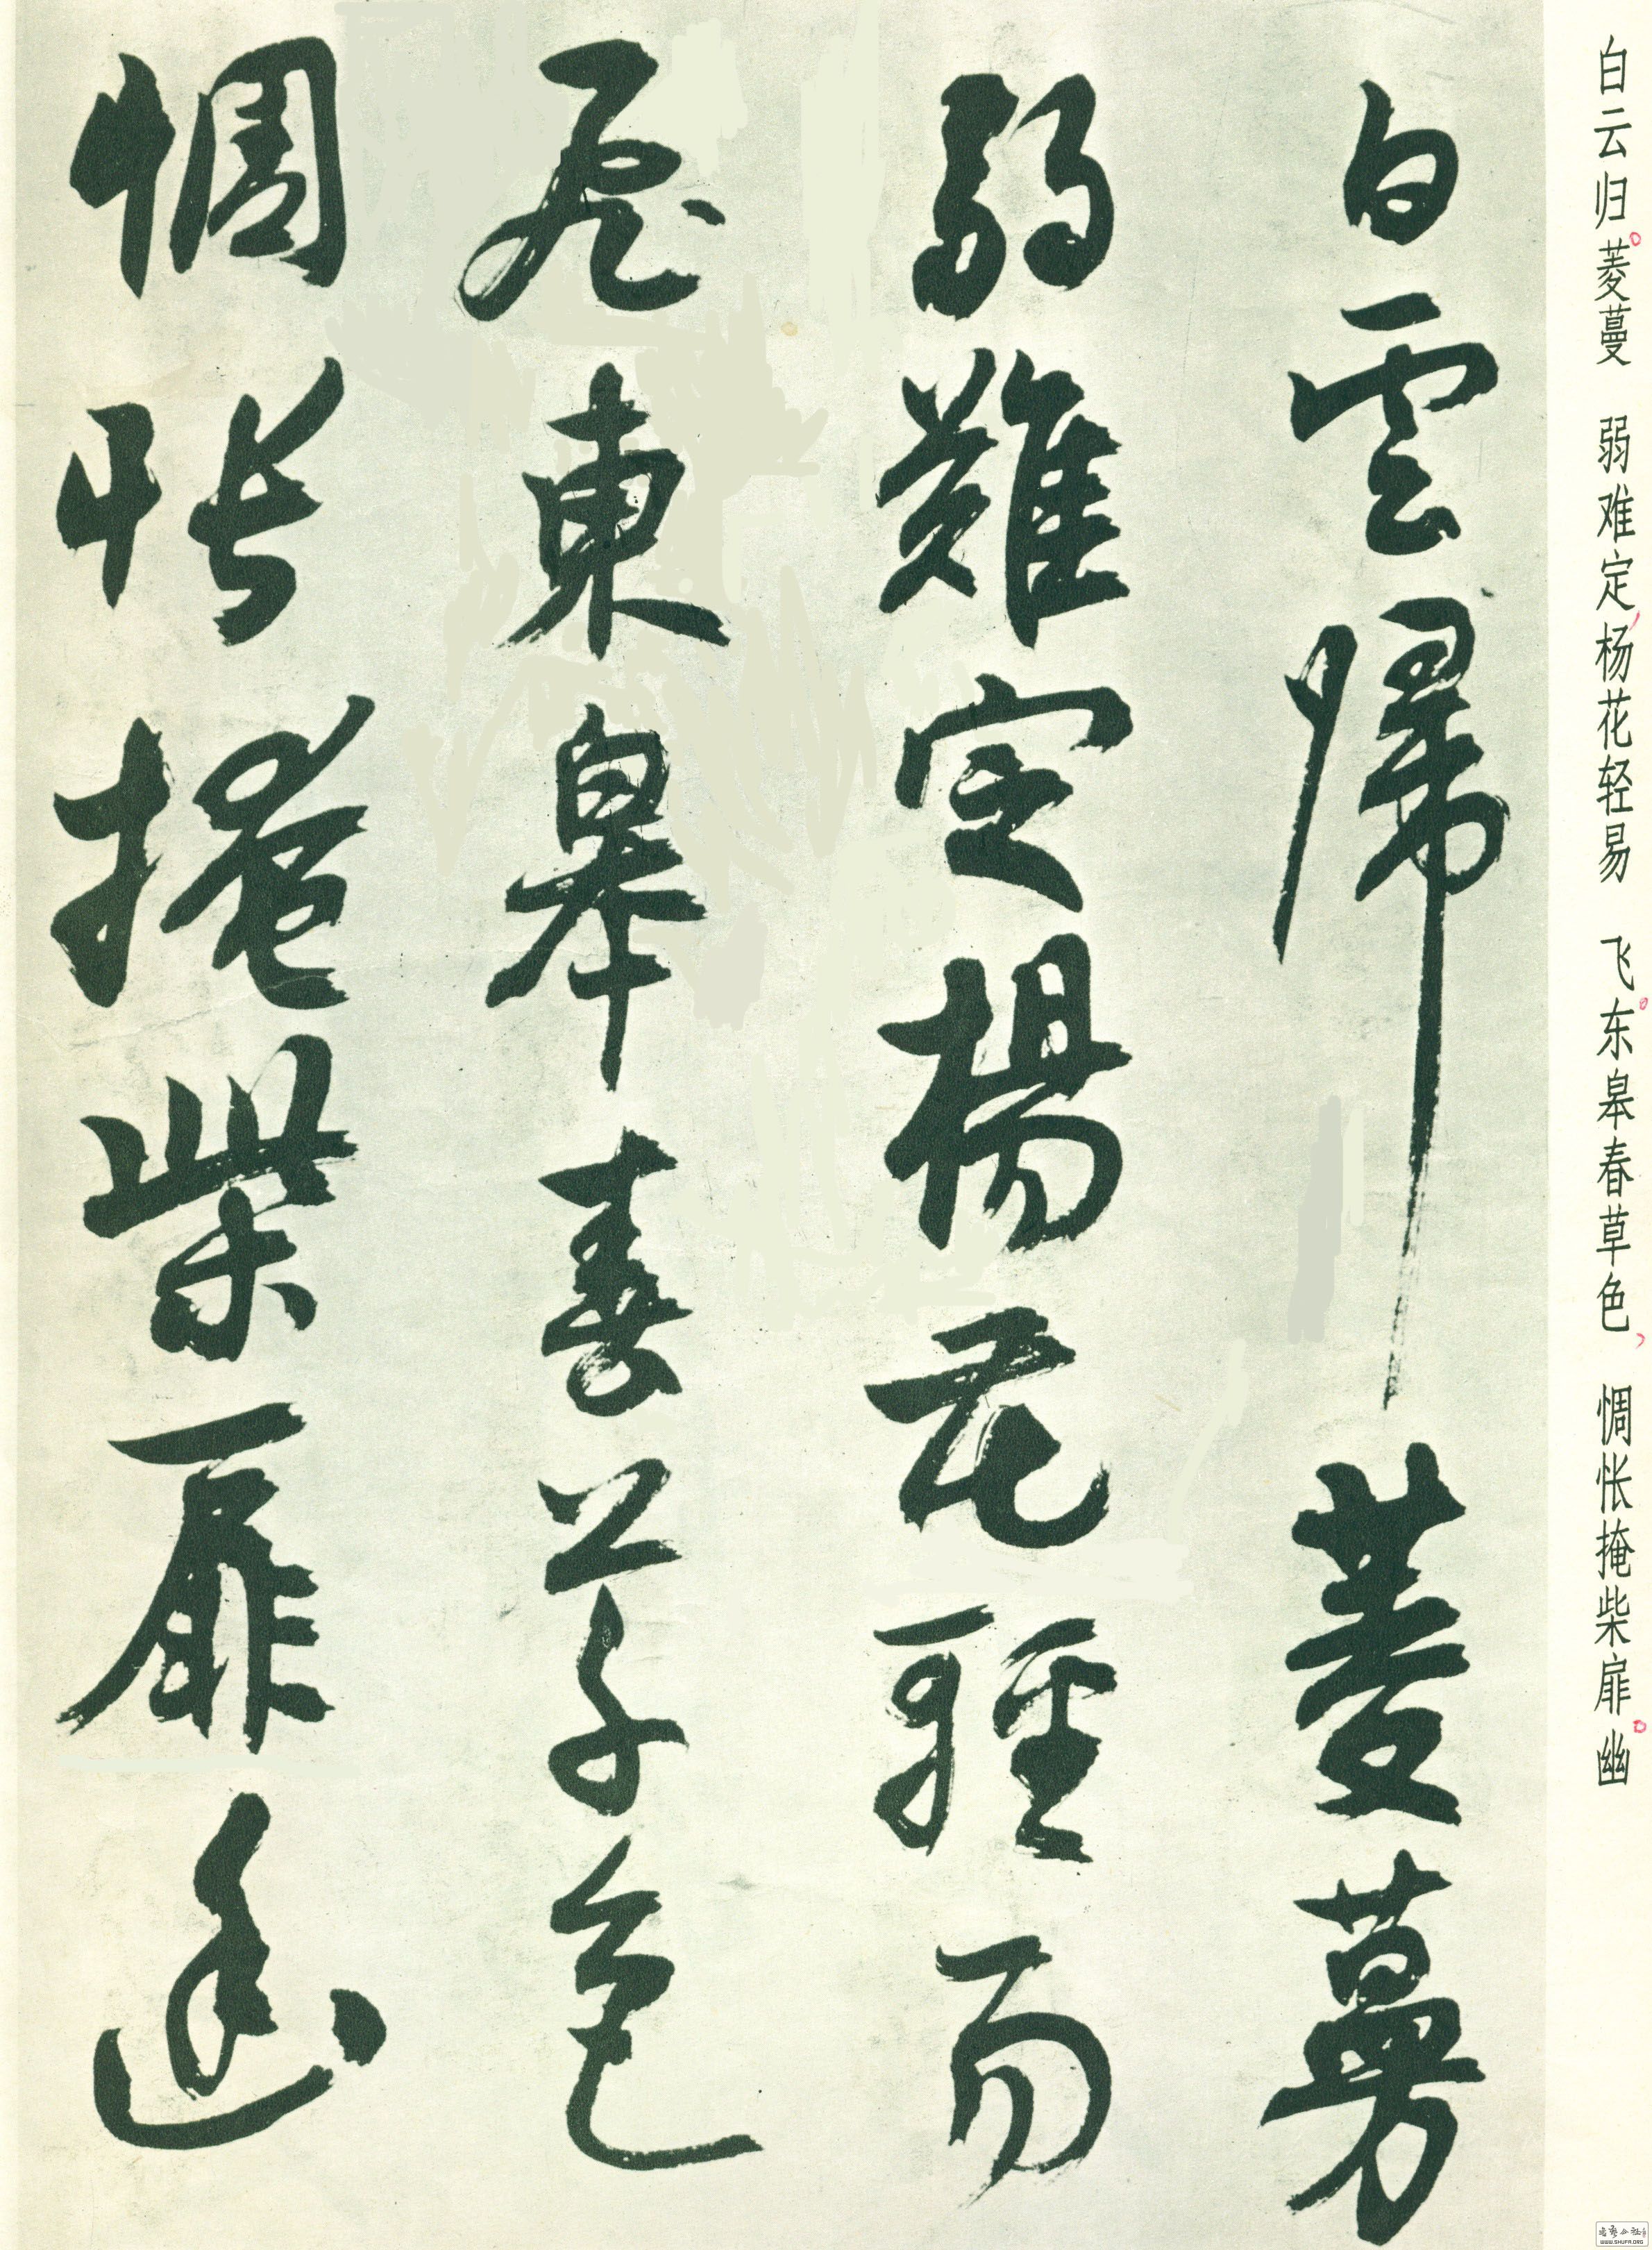 白云归菱蔓 弱难定杨花轻易 飞东皋春草色 惆怅掩柴扉幽
白雲歸菱蔓
弱難定楊花輕易
飛東皋春草色
惆悵掩柴扉幽
WWW.SHUFA.ORG